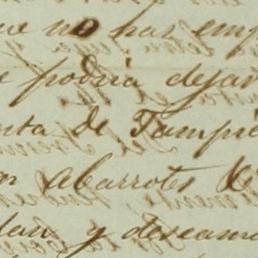 que no has emp
e podria dejar
nta de Tampi
on Abarrotes &
dan y deseamo